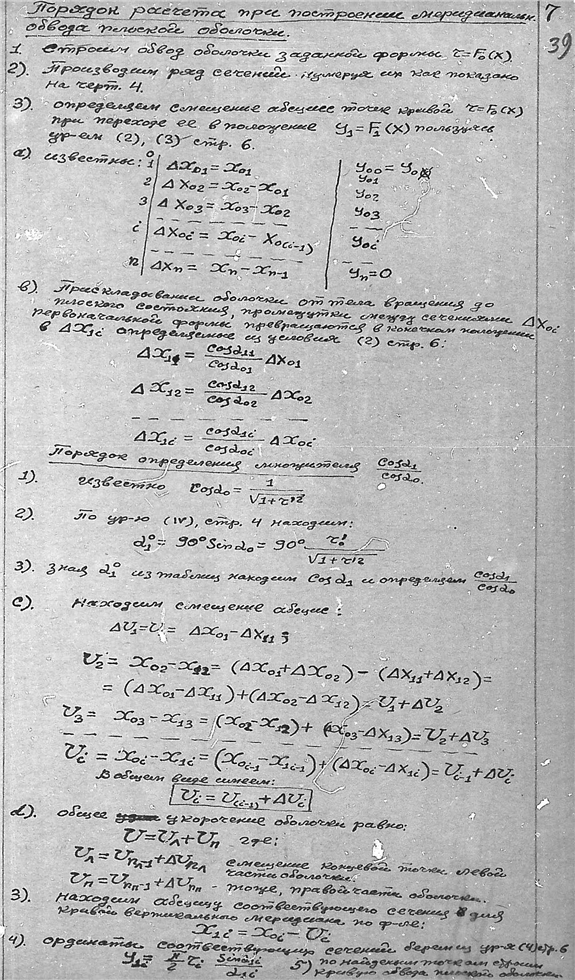 Порядок расчета при построении меридианальн. 7
обвода плоской оболочки. 39
1. Строим обвод оболочки заданной формы τ=F₀(x).
2). Производим ряд сечений нумеруя их как показано
на черт. 4.
3). определяем смещение абсцисс точек кривой τ=F₀(x)
при переходе ее в положение y₁=F₁(x) пользуясь
ур-ем (2), (3) стр. 6.
a). известны: 0
1 ΔX₀₁ = X₀₁ y₀₀ = y₀
y₀₁
2 ΔX₀₂ = X₀₂ - X₀₁ y₀₂
3 ΔX₀₃ = X₀₃ - X₀₂ y₀₃
i ΔX₀i = X₀i - X₀(i-1) y₀i
n ΔXn = Xn - Xn-1 yn=0
в). При складывании оболочки от тела вращения до
плоского состояния, промежутки между сечениями ΔX₀i
первоначальной формы превращаются в конечном положении
в ΔX₁i определяемые из условия (2) стр. 6:
ΔX₁₁ = cosα₁₁/cosα₀₁ ΔX₀₁
ΔX₁₂ = cosα₁₂/cosα₀₂ ΔX₀₂
ΔX₁i = cosα₁i/cosα₀i ΔX₀i
Порядок определения множителя cosα₁/cosα₀.
1). известно cosα₀ = 1/√1+τ'²
2). По ур-ю (IV), стр. 4 находим:
α₁° = 90° Sinα₀ = 90° τ₀'/√1+τ'²
3). зная α₁° из таблиц находим Cosα₁ и определяем cosα₁/cosα₀
c). Находим смещение абсцис:
ΔU₁=U = ΔX₀₁ - ΔX₁₁;
U₂ = X₀₂ - X₁₂ = (ΔX₀₁+ΔX₀₂) - (ΔX₁₁+ΔX₁₂)=
= (ΔX₀₁-ΔX₁₁)+(ΔX₀₂-ΔX₁₂)=U₁+ΔU₂
U₃ = X₀₃ - X₁₃ = (X₀₂-X₁₂)+(ΔX₀₃-ΔX₁₃)=U₂+ΔU₃
Ui = X₀i - X₁i = (X₀i-1 - X₁i-1)+(ΔX₀i-ΔX₁i)=Ui-1+ΔUi
В общем виде имеем:
Ui = U(i-1)+ΔUi
d). общее укорочение оболочки равно:
U=Uл+Uп где:
Uл=Unл-1+ΔUnл смещение концевой точки левой
части оболочки.
Uп=Unп-1+ΔUnп - тоже, правой части оболочки.
3). Находим абсцису соответствующего сечения для
кривой вертикального меридиана по ф-ле:
X₁i = X₀i - Ui
4). ординаты соответствующих сечений берем из ур-я (4) стр. 6
y₁i = π/2 τi Sinα₁i/α₁i 5) по найденным точкам строим
кривую обвода плоской оболочки